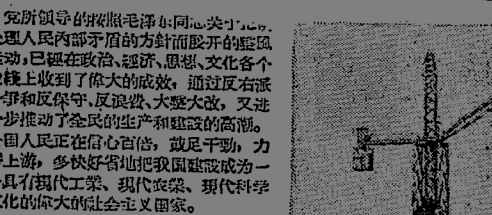 党所领导的按照毛泽东同志关于
理人民内部矛盾的方針而展开的整風
动,已經在政治、經济、思想、文化各个
綫上收到了偉大的成效,通过反右派
爭和反保守、反浪費、大整大改,又进
步推动了全民的生产和建設的高潮。
国人民正在信心百倍,鼓足干勁,力
上游,多快好省地把我国建設成为一
具有現代工業、現代农業、現代科学
化的偉大的社会主义国家。